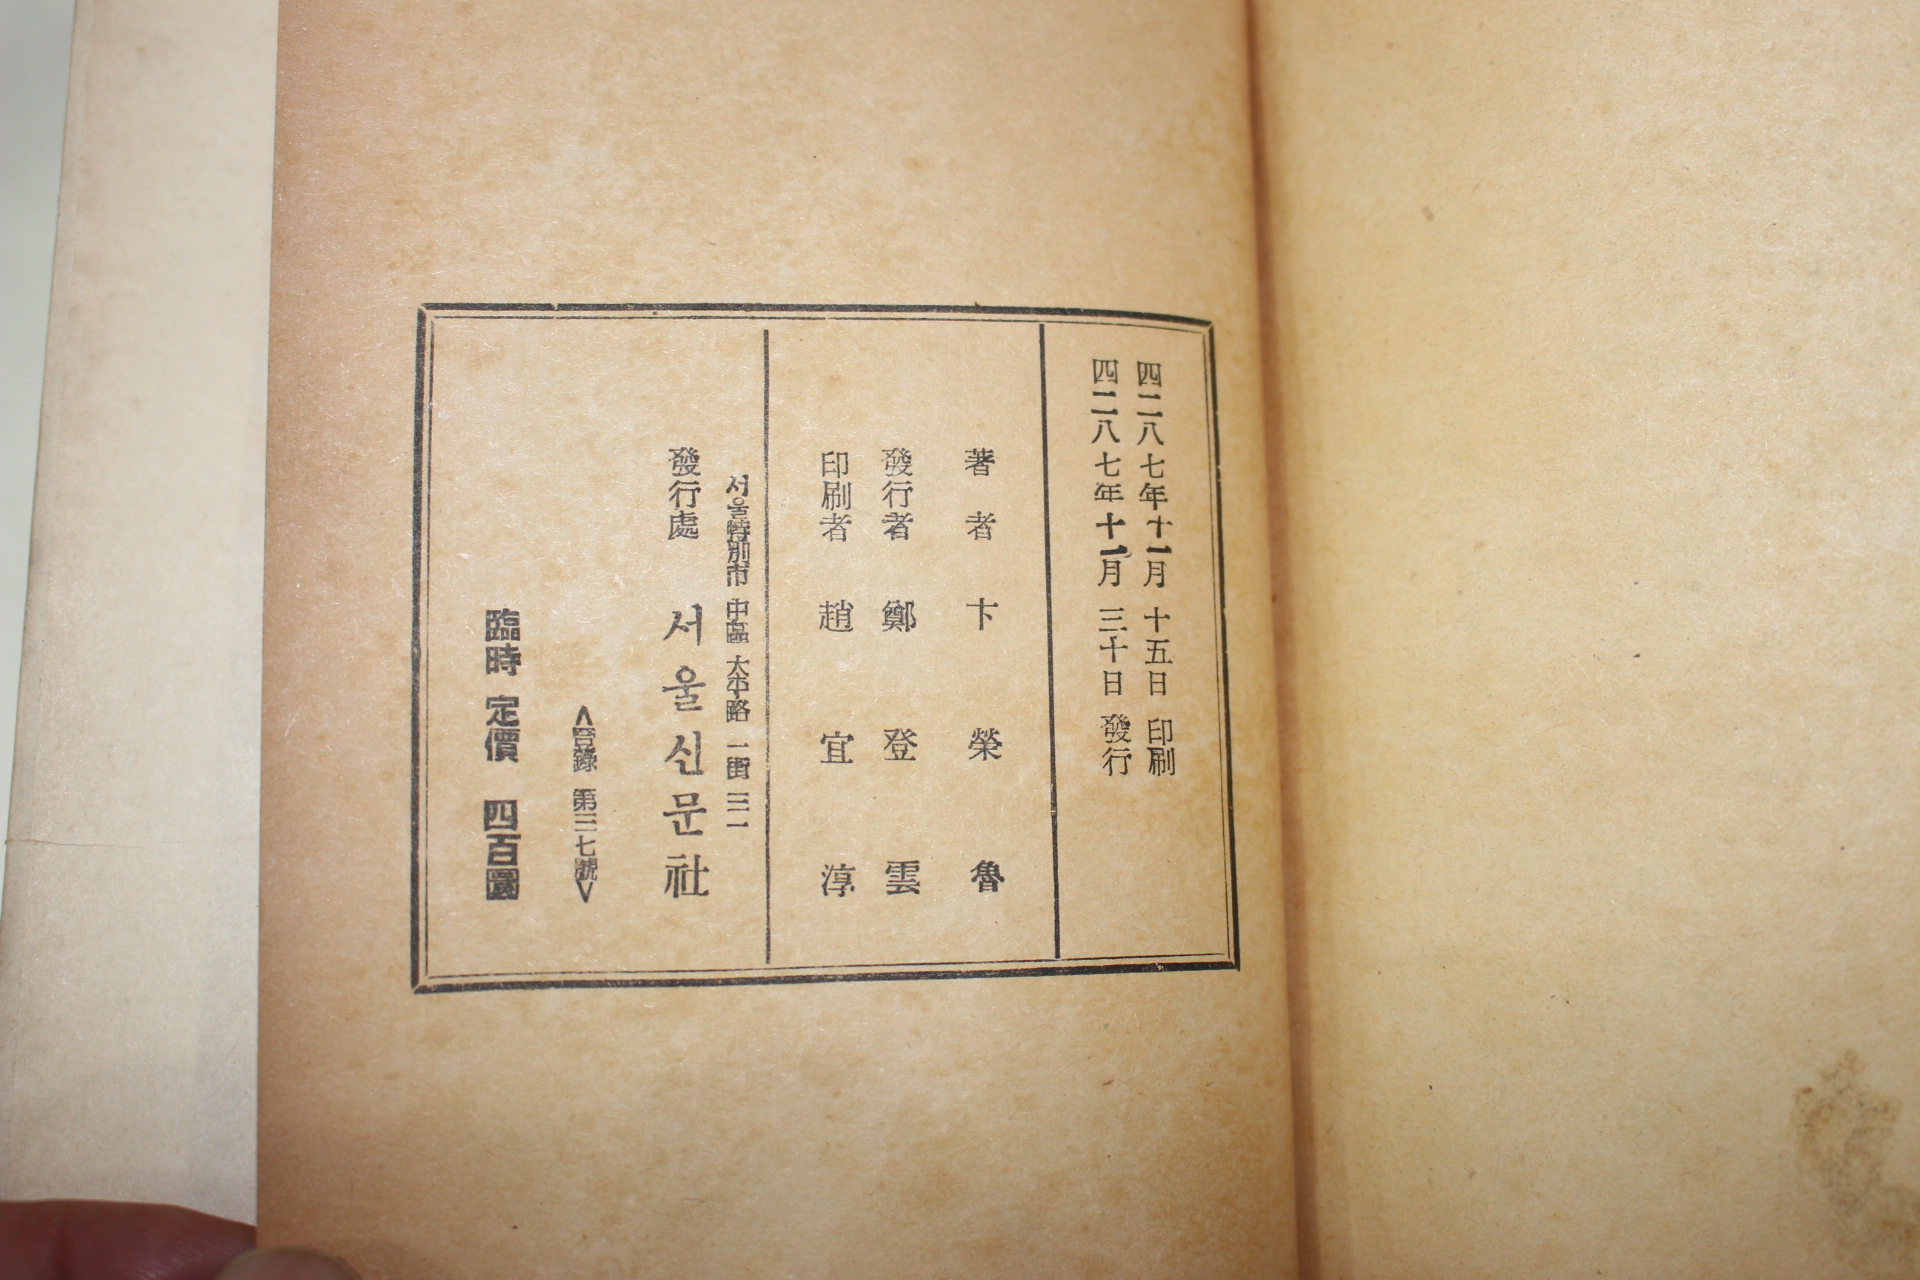 四二八七年十一月 十五日 印刷
四二八七年十一月 三十日 發行
著者 卞榮魯
發行者 鄭登雲
印刷者 趙宜淳
서울特別市 中區 太平路 一街 三一
發行處 서울신문社
<登錄 第三七號>
臨時 定價 四百圜